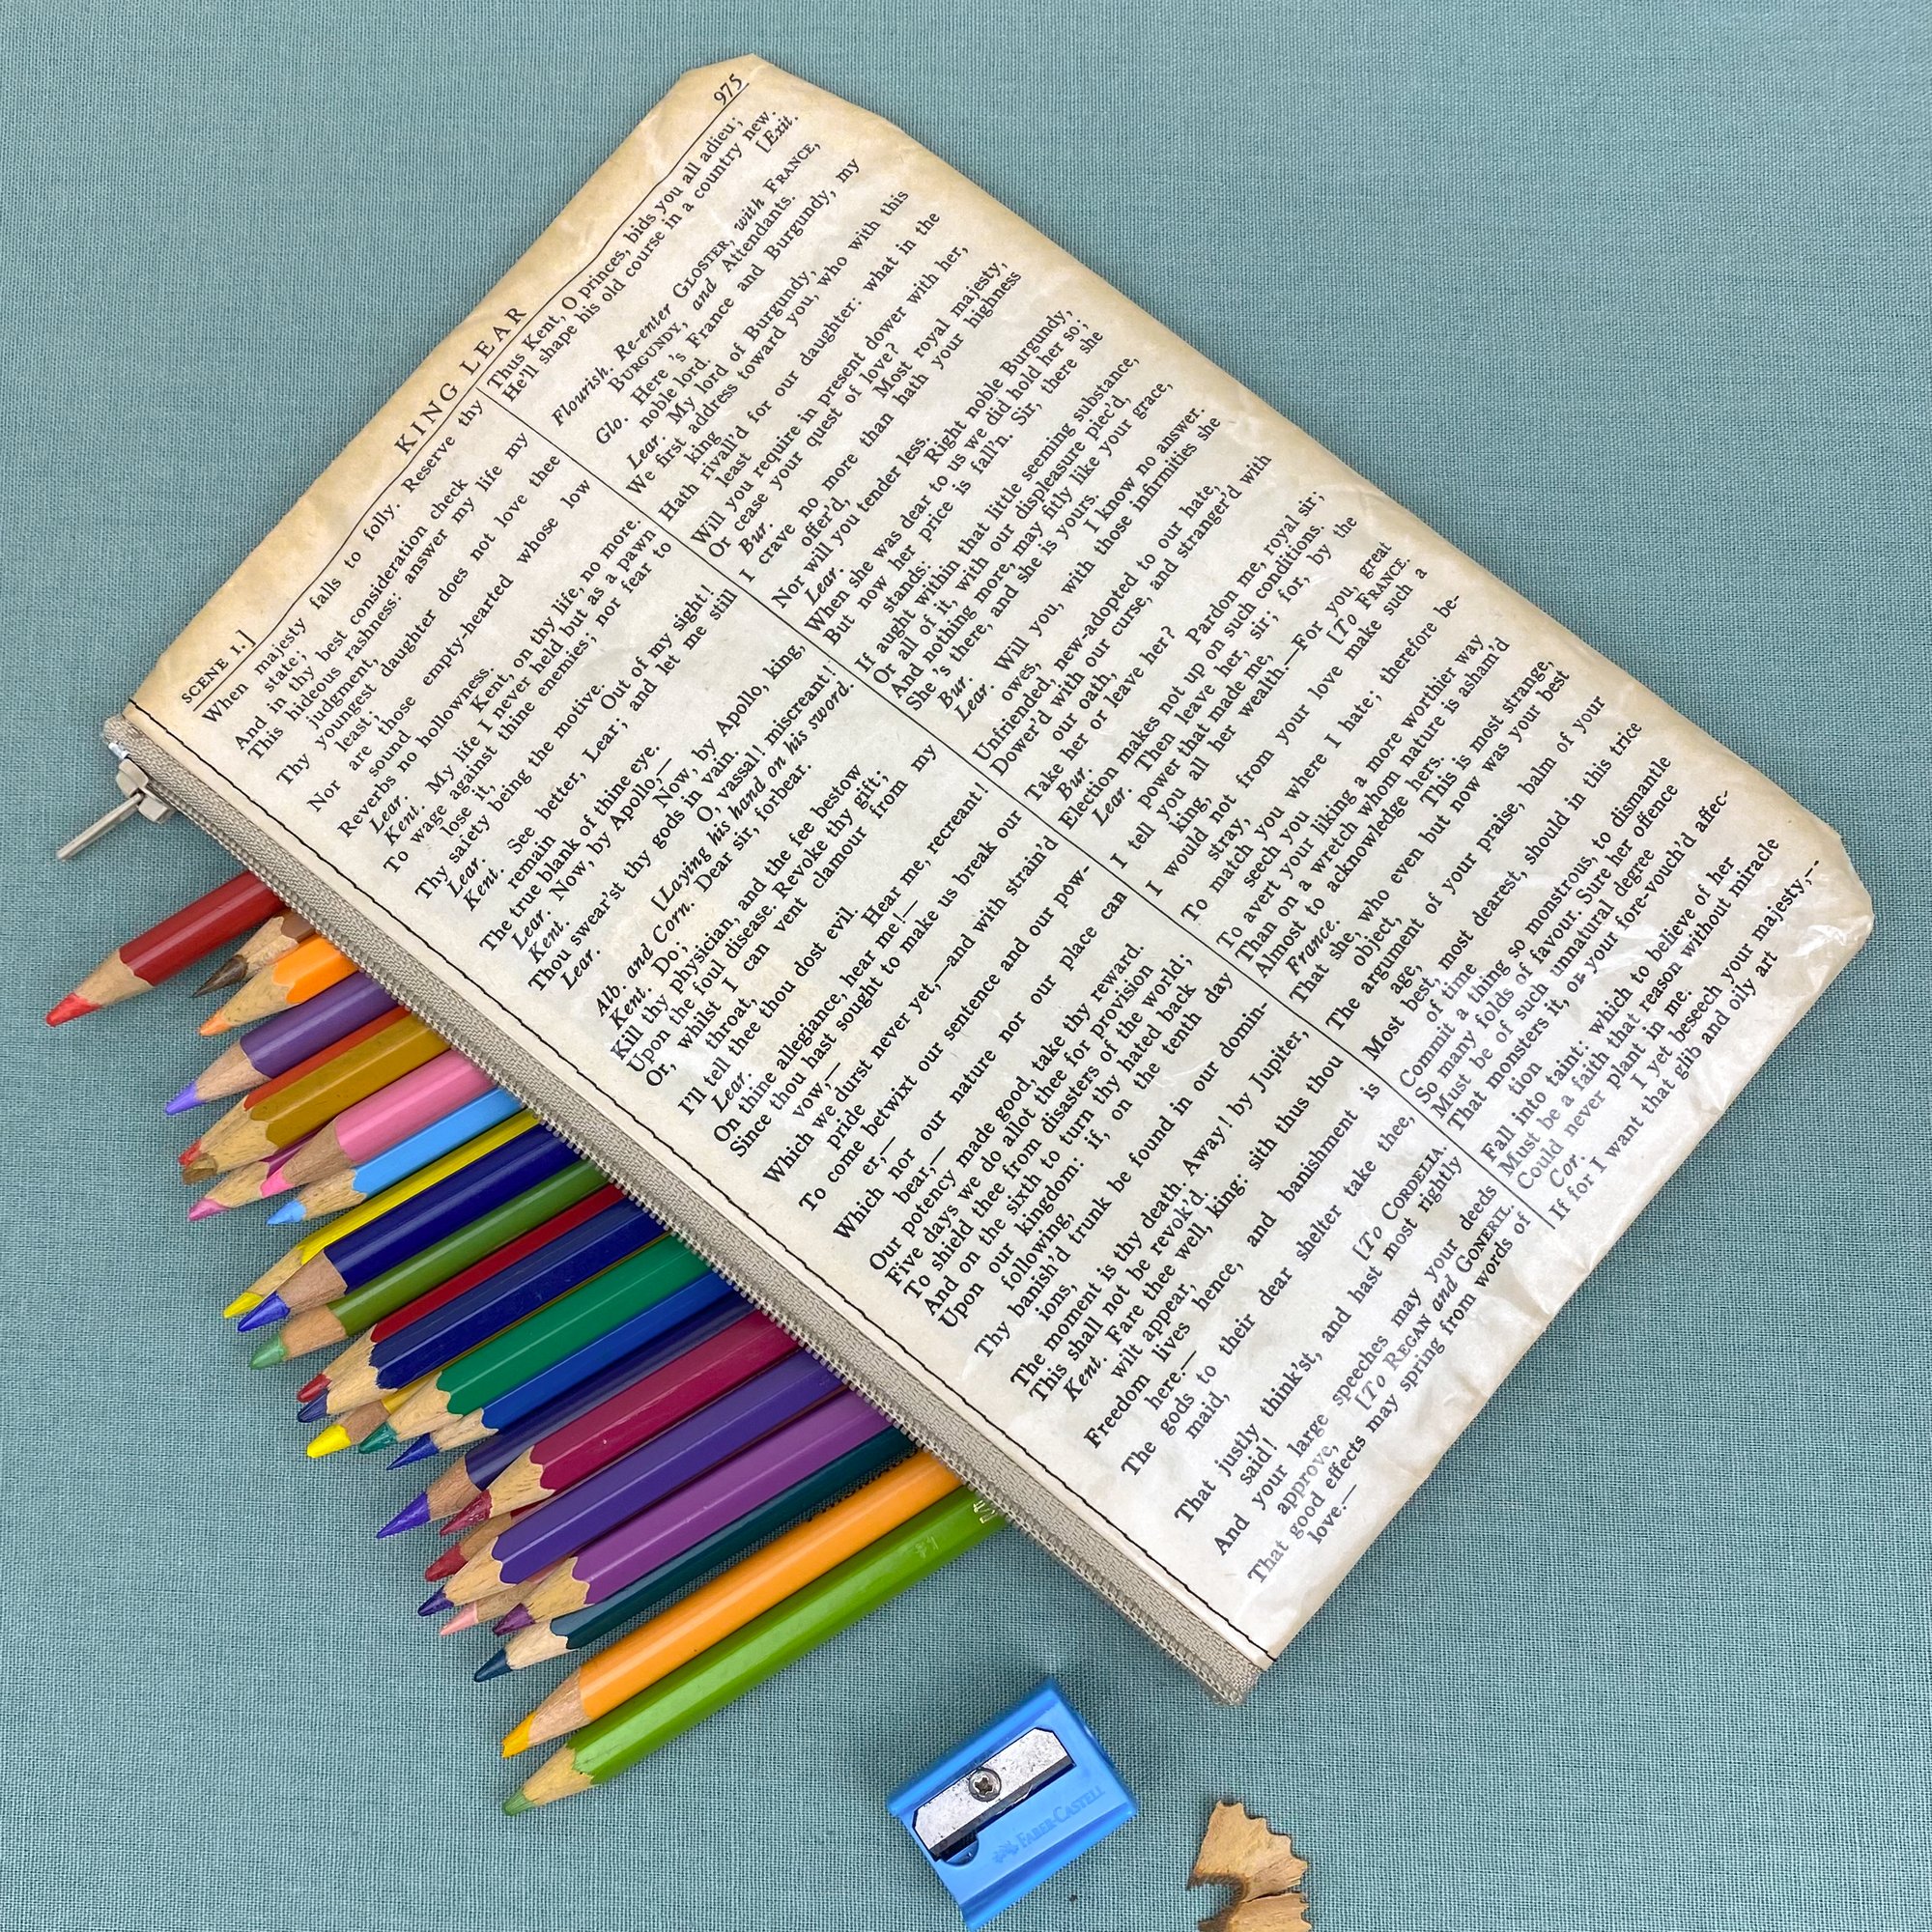 SCENE I.] KING LEAR 975
When majesty falls to folly. Reserve thy
state;
And in thy best consideration check
This hideous rashness: answer my life my
judgment,
Thy youngest daughter does not love thee
least;
Nor are those empty-hearted whose low
sound
Reverbs no hollowness.
Lear. Kent, on thy life, no more.
Kent. My life I never held but as a pawn
To wage against thine enemies; nor fear to
lose it,
Thy safety being the motive.
Lear. Out of my sight!
Kent. See better, Lear; and let me still
remain
The true blank of thine eye.
Lear. Now, by Apollo,—
Kent. Now, by Apollo, king,
Thou swear'st thy gods in vain.
Lear. O, vassal! miscreant!
[Laying his hand on his sword.
Alb. and Corn. Dear sir, forbear.
Kent. Do;
Kill thy physician, and the fee bestow
Upon the foul disease. Revoke thy gift;
Or, whilst I can vent clamour from my
throat,
I'll tell thee thou dost evil.
Lear. Hear me, recreant!
On thine allegiance, hear me!—
Since thou hast sought to make us break our
vow,—
Which we durst never yet,—and with strain'd
pride
To come betwixt our sentence and our pow-
er,—
Which nor our nature nor our place can
bear,—
Our potency made good, take thy reward.
Five days we do allot thee for provision
To shield thee from disasters of the world;
And on the sixth to turn thy hated back
Upon our kingdom: if, on the tenth day
following,
Thy banish'd trunk be found in our domin-
ions,
The moment is thy death. Away! by Jupiter,
This shall not be revok'd.
Kent. Fare thee well, king: sith thus thou
wilt appear,
Freedom lives hence, and banishment is
here.—
The gods to their dear shelter take thee,
maid, [To CORDELIA.
That justly think'st, and hast most rightly
said!
And your large speeches may your deeds
approve, [To REGAN and GONERIL.
That good effects may spring from words of
love.—
Thus Kent, O princes, bids you all adieu;
He'll shape his old course in a country new.
[Exit.
Flourish. Re-enter GLOSTER, with FRANCE,
BURGUNDY, and Attendants.
Glo. Here's France and Burgundy, my
noble lord.
Lear. My lord of Burgundy,
We first address toward you, who with this
king
Hath rivall'd for our daughter: what in the
least
Will you require in present dower with her,
Or cease your quest of love?
Bur. Most royal majesty,
I crave no more than hath your highness
offer'd,
Nor will you tender less.
Lear. Right noble Burgundy,
When she was dear to us we did hold her so;
But now her price is fall'n. Sir, there she
stands:
If aught within that little seeming substance,
Or all of it, with our displeasure piec'd,
And nothing more, may fitly like your grace,
She's there, and she is yours.
Bur. I know no answer.
Lear. Will you, with those infirmities she
owes,
Unfriended, new-adopted to our hate,
Dower'd with our curse, and stranger'd with
our oath,
Take her or leave her?
Bur. Pardon me, royal sir;
Election makes not up on such conditions.
Lear. Then leave her, sir; for, by the
power that made me,
I tell you all her wealth.—For you, great
king, [To FRANCE.
I would not from your love make such a
stray,
To match you where I hate; therefore be-
seech you
To avert your liking a more worthier way
Than on a wretch whom nature is asham'd
Almost to acknowledge hers.
France. This is most strange,
That she, who even but now was your best
object,
The argument of your praise, balm of your
age,
Most best, most dearest, should in this trice
of time
Commit a thing so monstrous, to dismantle
So many folds of favour. Sure her offence
Must be of such unnatural degree
That monsters it, or your fore-vouch'd affec-
tion
Fall into taint: which to believe of her
Must be a faith that reason without miracle
Could never plant in me.
Cor. I yet beseech your majesty,—
If for I want that glib and oily art
FABER-CASTELL